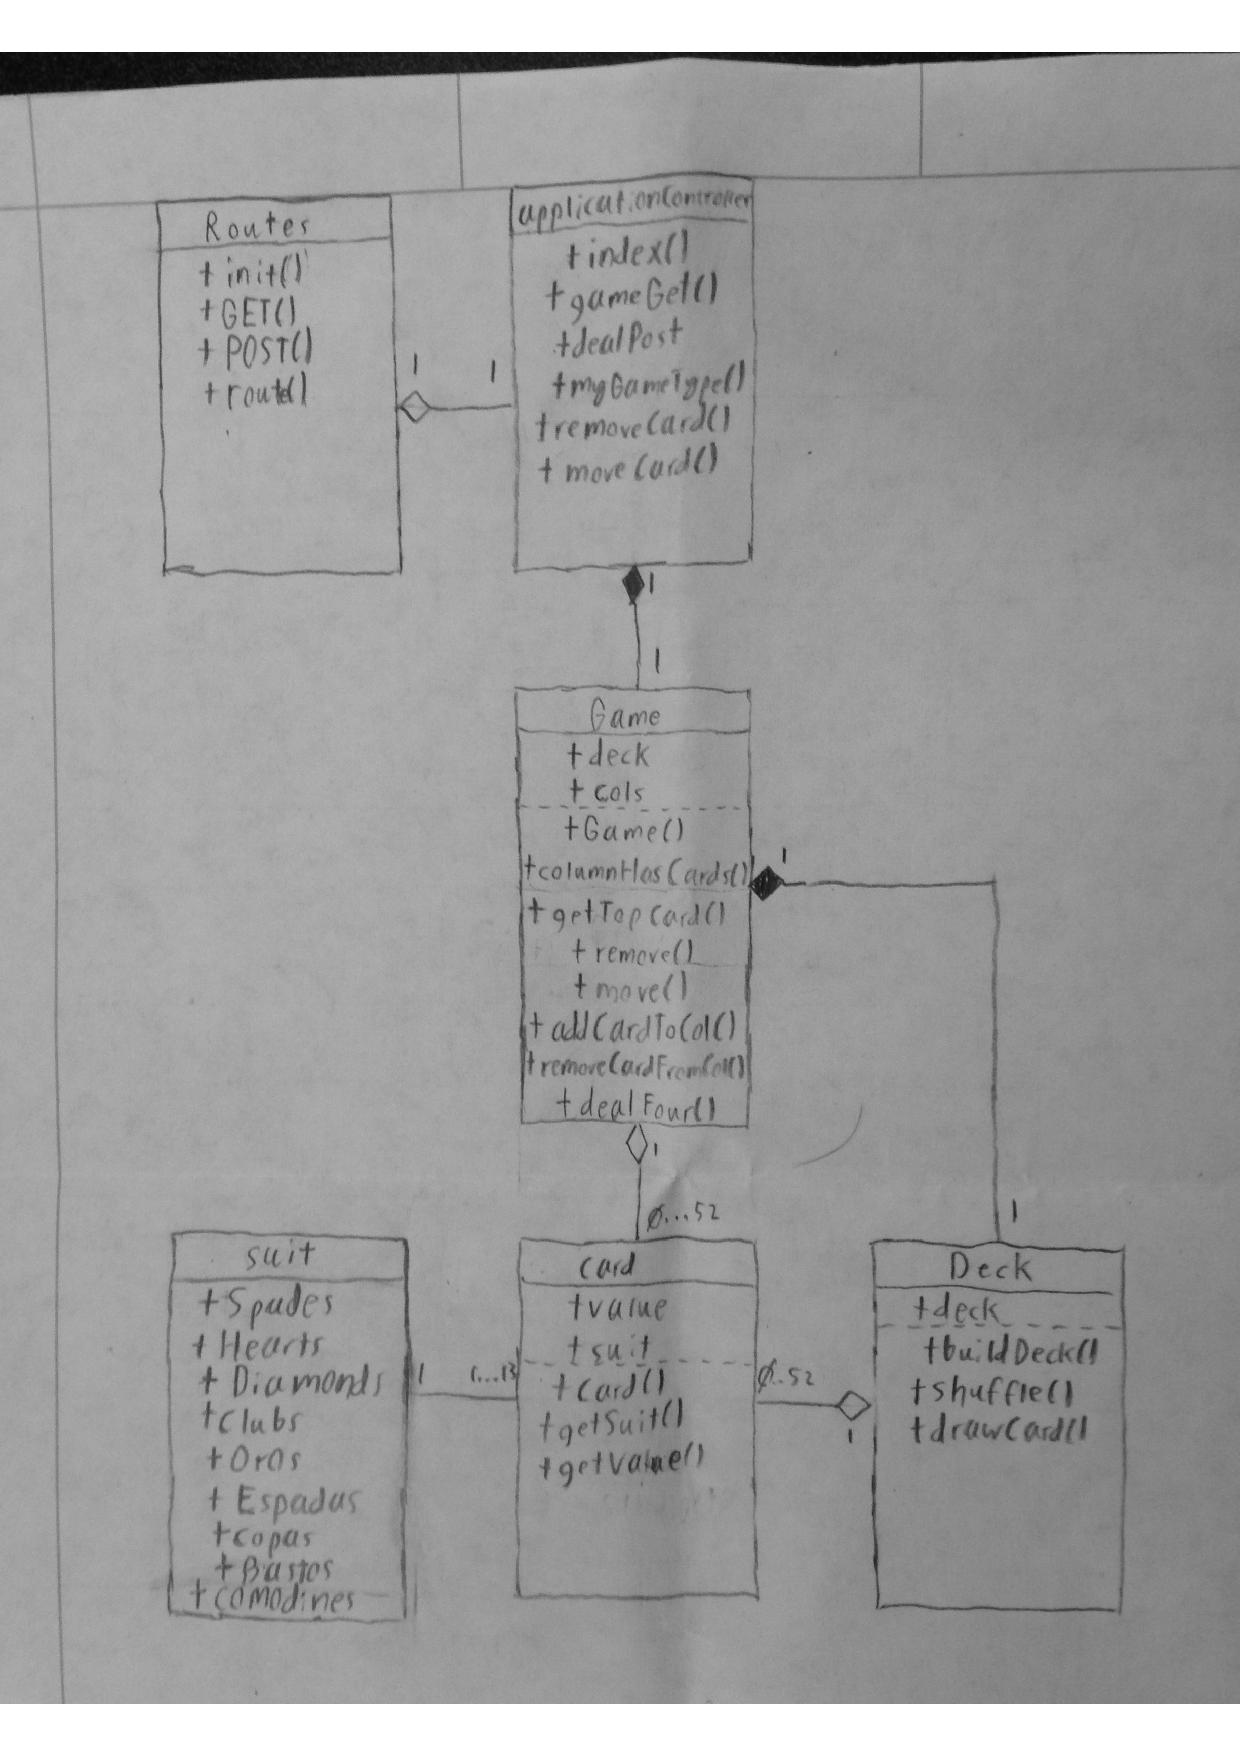 Routes
+ init()
+ GET()
+ POST()
+ route()
1
1
applicationController
+ index()
+ gameGet()
+ dealPost
+ myGameType()
+ removeCard()
+ moveCard()
1
1
Game
+ deck
+ cols
+ Game()
+ columnHasCards()
+ getTopCard()
+ remove()
+ move()
+ addCardToCol()
+ removeCardFromCol()
+ dealFour()
1
1
1
0...52
suit
+ Spades
+ Hearts
+ Diamonds
+ Clubs
+ Oros
+ Espadas
+ Copas
+ Bastos
+ Comodines
1
1...13
Card
+ value
+ suit
+ Card()
+ getSuit()
+ getValue()
0..52
1
Deck
+ deck
+ buildDeck()
+ shuffle()
+ drawCard()